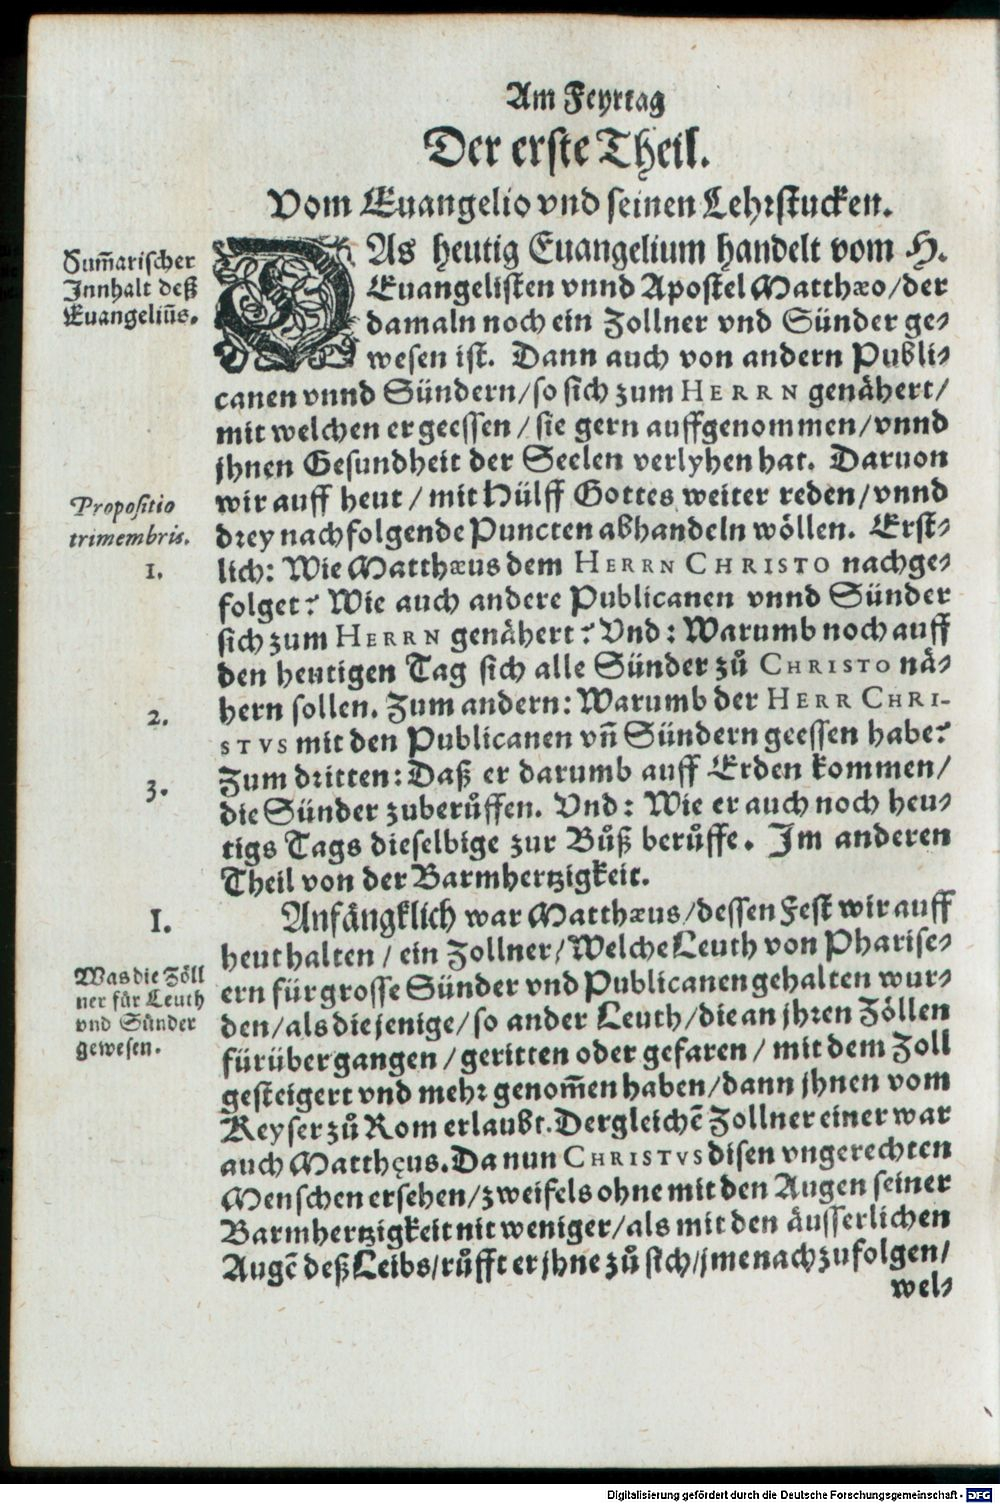 Am Feyrtag
Der erste Theil.
Vom Euangelio vnd seinen Lehrstucken.
Sum̄arischer
Innhalt deß
Euangeliūs.
DAs heutig Euangelium handelt vom H.
Euangelisten vnnd Apostel Matthæo/der
damaln noch ein Zollner vnd Sünder ge-
wesen ist. Dann auch von andern Publi-
canen vnnd Sündern/so sich zum HERRN genähert/
mit welchen er geessen/sie gern auffgenommen/vnnd
jhnen Gesundheit der Seelen verlyhen hat. Daruon
Propositio
trimembris.
wir auff heut/mit Hülff Gottes weiter reden/vnnd
drey nachfolgende Puncten abhandeln wöllen. Erst-
1.
lich: Wie Matthæus dem HERRN CHRISTO nachge-
folget? Wie auch andere Publicanen vnnd Sünder
sich zum HERRN genähert? Vnd: Warumb noch auff
den heutigen Tag sich alle Sünder zů CHRISTO nä-
2.
hern sollen. Zum andern: Warumb der HERR CHRI-
STVS mit den Publicanen vñ Sündern geessen habe?
3.
Zum dritten: Daß er darumb auff Erden kommen/
die Sünder zuberůffen. Vnd: Wie er auch noch heu-
tigs Tags dieselbige zur Bůß berůffe. Im anderen
Theil von der Barmhertzigkeit.
I.
Anfängklich war Matthæus/dessen Fest wir auff
heut halten/ein Zollner/Welche Leuth von Pharise-
Was die Zöll
ner für Leuth
vnd Sünder
gewesen.
ern für grosse Sünder vnd Publicanen gehalten wur-
den/als diejenige/so ander Leuth/die an jhren Zöllen
fürüber gangen/geritten oder gefaren/mit dem Zoll
gesteigert vnd mehr genom̄en haben/dann jhnen vom
Keyser zů Rom erlaubt. Dergleichē Zollner einer war
auch Matthęus. Da nun CHRISTVS disen vngerechten
Menschen ersehen/zweifels ohne mit den Augen seiner
Barmhertzigkeit nit weniger/als mit den äusserlichen
Augē deß Leibs/růfft er jhne zů sich/jme nachzufolgen/
wel-
Digitalisierung gefördert durch die Deutsche Forschungsgemeinschaft - DFG